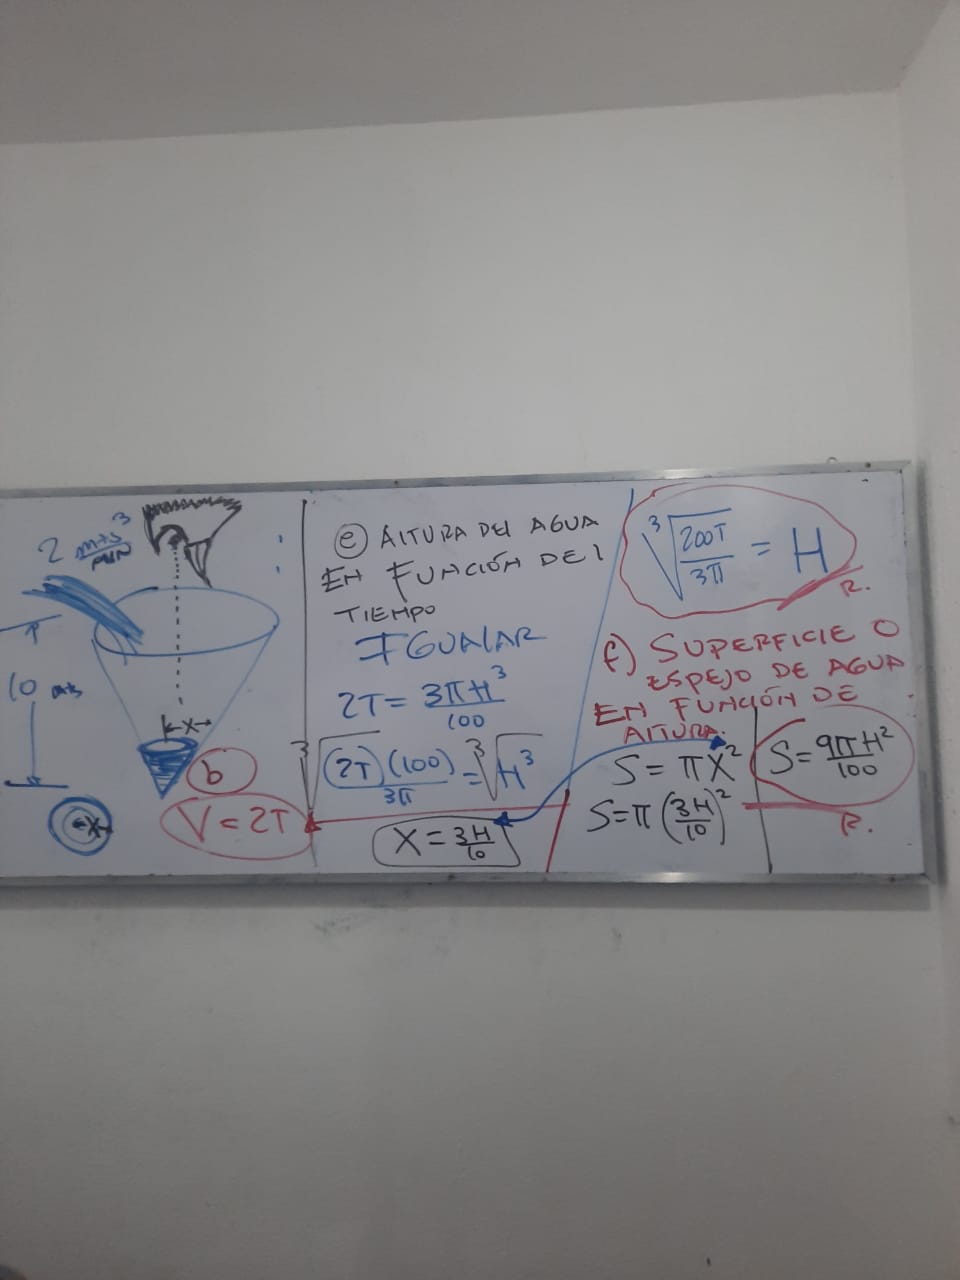 2 mts³/min
10 mts
X
X
b
V = 2T
e) ALTURA DEL AGUA
EN FUNCIÓN DEL
TIEMPO
IGUALAR
2T = 3πH³/100
∛((2T)(100)/3π) = ∛H³
X = 3H/10
∛(200T/3π) = H
R.
f) SUPERFICIE O
ESPEJO DE AGUA
EN FUNCIÓN DE
ALTURA.
S = πX²
S = π(3H/10)²
S = 9πH²/100
R.